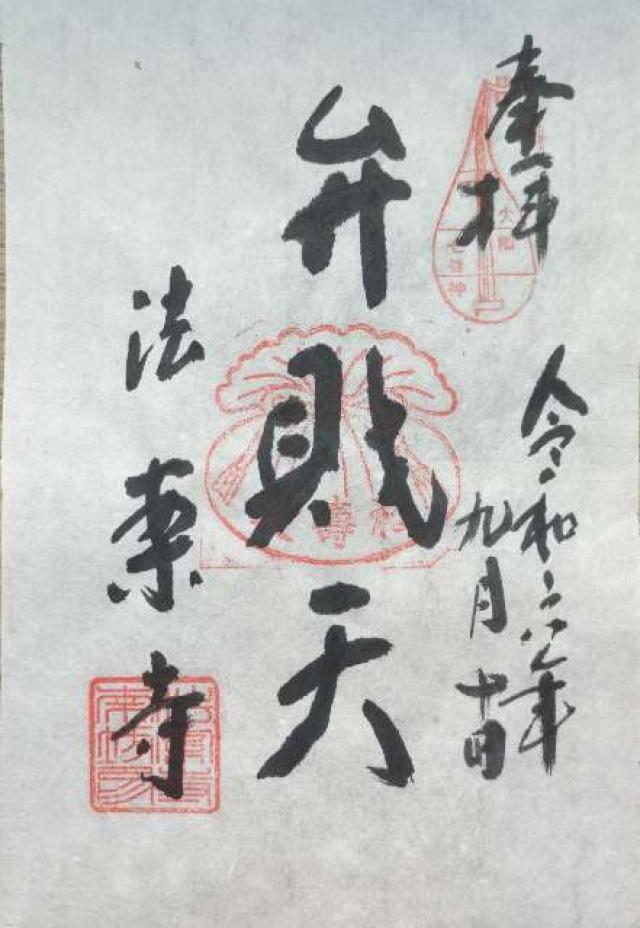 奉拝
令和六年
九月十四日
弁財天
法楽寺